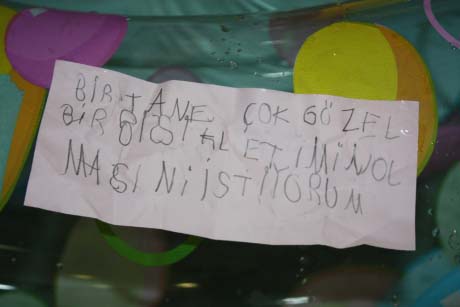 BİR TANE ÇOK GÖZEL
BİR ALETİMİNOL
MASI NİİSTİYORUM